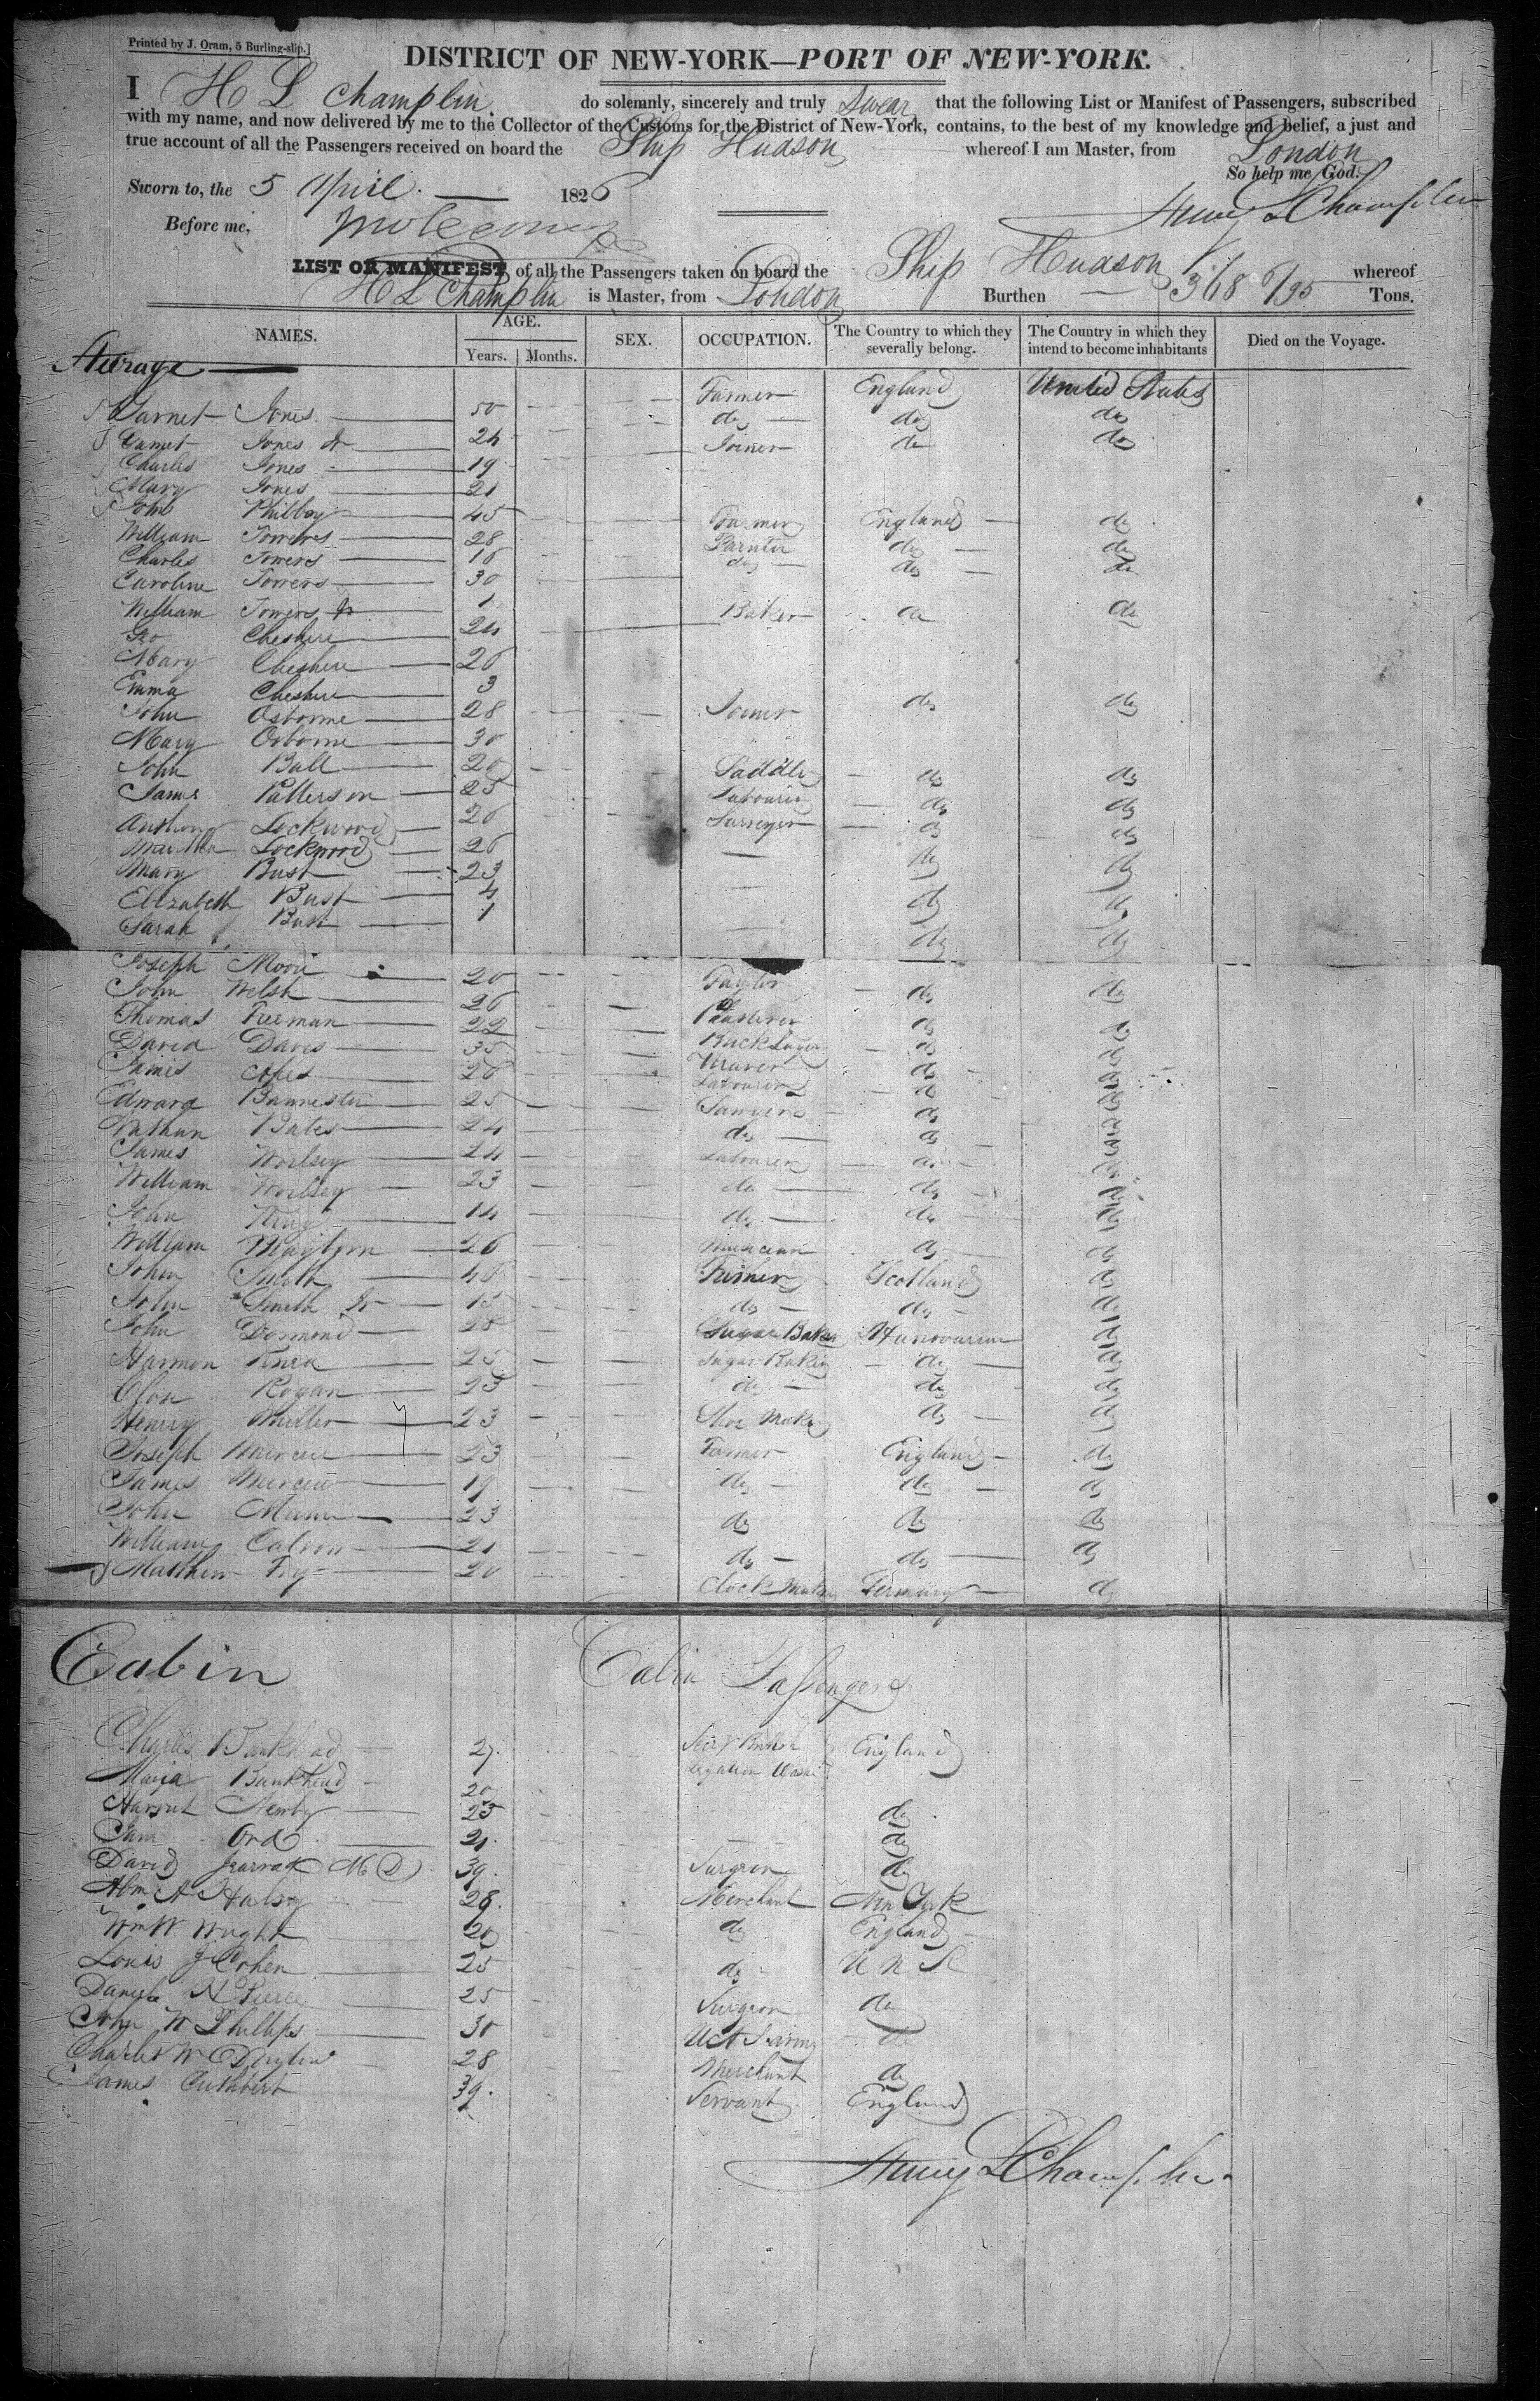 Printed by J. Oram, 5 Burling-slip.]
DISTRICT OF NEW-YORK—PORT OF NEW-YORK.
I H L Champlin do solemnly, sincerely and truly Swear that the following List or Manifest of Passengers, subscribed
with my name, and now delivered by me to the Collector of the Customs for the District of New-York, contains, to the best of my knowledge and belief, a just and
true account of all the Passengers received on board the Ship Hudson whereof I am Master, from London
So help me God.
Sworn to, the 5 April 1826
Henry L Champlin
Before me,
LIST OR MANIFEST of all the Passengers taken on board the Ship Hudson whereof
H L Champlin is Master, from London Burthen 368 6/95 Tons.
NAMES. AGE. Years. Months. SEX. OCCUPATION. The Country to which they severally belong. The Country in which they intend to become inhabitants Died on the Voyage.
Steerage
Jones 50 Farmer England United States
Jones Jr 24 do do do
Charles Jones 19 Joiner do do
Mary Jones 21
John 45 Farmer England do
William Towers 28 do do
Charles Towers 16 do do do
Caroline Towers 30
William Towers Jr 1
Geo Cheshire 24 Baker do do
Mary Cheshire 26
Emma Cheshire 3
John Osborne 28 Joiner do do
Mary Osborne 30
John Ball 20 Saddler do do
James Patterson 25 Labourer do do
Anthony Lockwood 26 Surveyor do do
Lockwood 26 do do
Mary Bust 23 do do
Elizabeth Bust 4 do do
Sarah Bust 1
Joseph Moore 20 Taylor do do
John Welsh 26 Plasterer do do
Thomas Freeman 22 Bricklayer do do
David Davis 35 Weaver do do
James 26 Labourer do do
Edward Bannester 25 Sawyer do do
Nathan Bates 24 do do do
James Worlsey 24 Labourer do do
William Worlsey 23 do do do
John King 14 do do do
William 26 Musician do do
John Smith 46 Farmer Scotland do
John Smith Jr 15 do do do
John Dormond 28 Sugar Baker Hanoverian do
Harmon 25 Sugar Baker do do
Rogan 23 do do do
Henry Miller 23 Shoe Maker do do
Joseph Mercer 23 Farmer England do
James Mercer 19 do do do
John 23 do do do
William 21 do do do
Matthew Fry 20 Clock Maker Germany do
Cabin Cabin Passengers
Charles Bankhead 27 Secy British England
Legation
Maria Bankhead 20
Harriet Newby 23 do
Jane Ord 21 do
David M D 39 Surgeon do
Abm A Halsey 28 Merchant New York
Wm W Wright 20 do England
Louis J Cohen 25 do U N S
N Pierce 25 Surgeon do
John W Phillips 30 do
Charles W 28 Merchant do
James Cuthbert 39 Servant England
Henry L Champlin